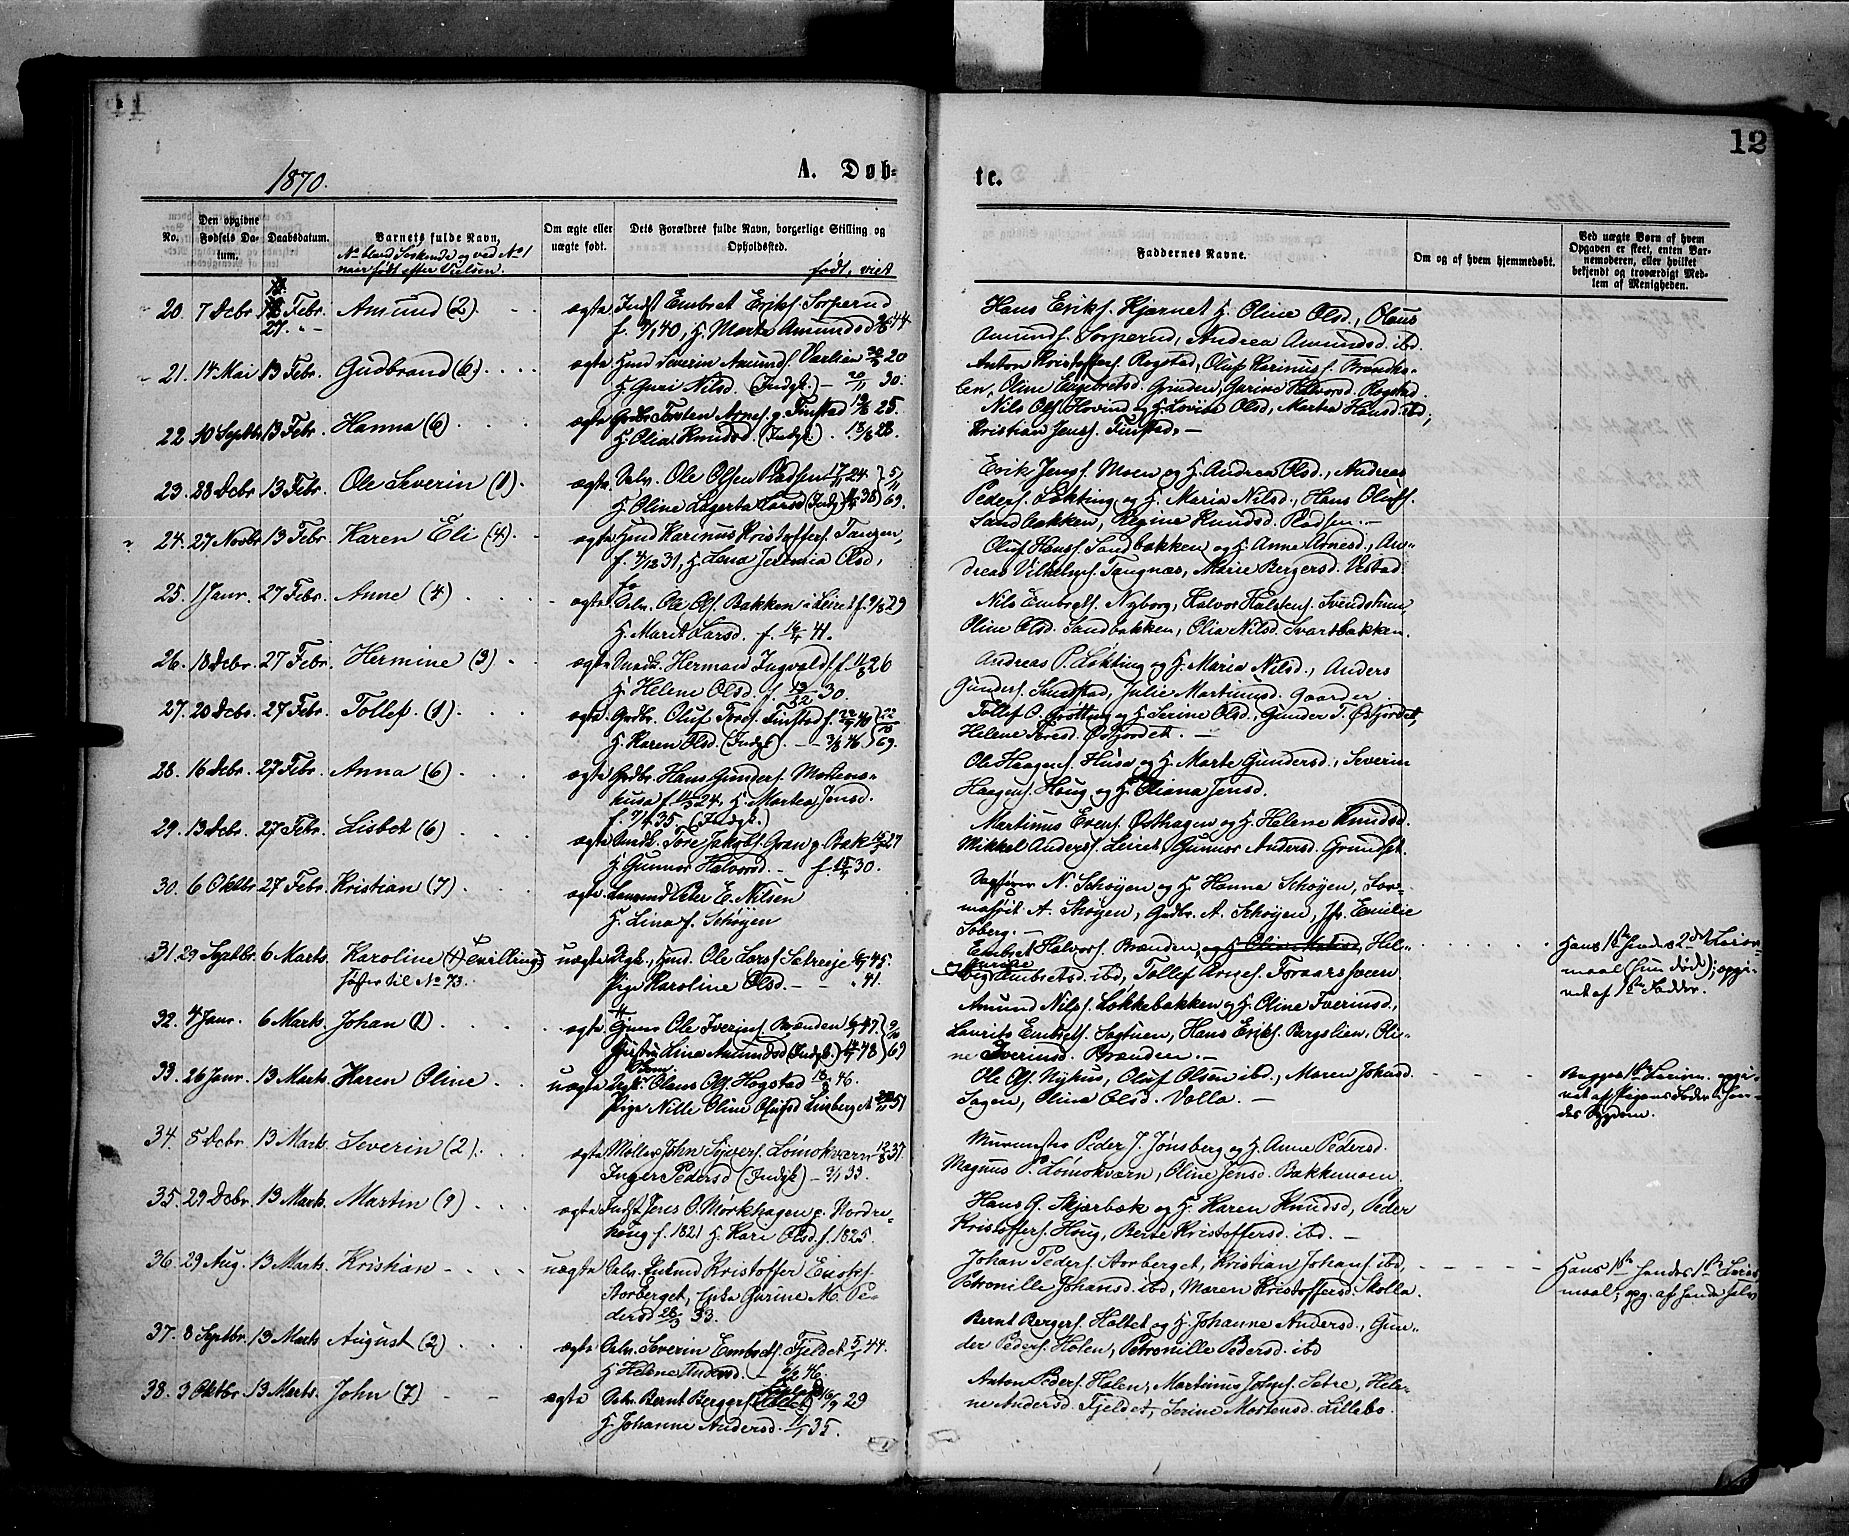 12
1870.
A. Døb-
te.
No.
Den opgivne Fødsels Datum.
Daabsdatum.
Barnets fulde Navn,
No bland Søskende og ved No 1
naar født efter Vielsen.
Om ægte eller uægte født.
Dets Forældres fulde Navn, borgerlige Stilling og Opholdsted.
født, viet
Faddernes Navne.
Om og af hvem hjemmedøbt.
Ved uægte Børn af hvem Opgaven er skeet, enten Barnemoderen, eller hvilket bekjendt og troværdigt Medlem af Menigheden.
20. 7 Decbr Febr. Amund (2) ægte Indst Embret Eriks. Sorperud
27. " - f. 40, H. Marte Amundsd 44
Hans Eriks. Kjærnet H. Oline Olsd., Olaus
Amunds. Sorperud, Andrea Amundsd. ibd.
21. 14 Mai 13 Febr. Gudbrand (6) ægte Hmd Severin Amunds. Varlien 20
H. Guri Nilsd (Indgk.) - 30.
Anton Kristoffers. Rogstad, Oluf Karinuss.
Oline Engebretsd. Grinden, Gurine Halvorsd. Rogstad
22. 10 Septbr 13 Febr. Hanna (6) ægte Grdbr Torsten Arnes. p. Finstad 25.
H. Olia Knudsd. (Indgk.) . 28.
Nils Ols. Hovind og H. Lovise Olsd, Martea Hansd ibd,
Kristian Jenss. Finstad. -
23. 28 Decbr 13 Febr. Ole Severin (1). ægte Selv. Ole Olsen Pladsen 24.
H. Oline Lagerta Larsd (Indgk.) 69.
Erik Jenss. Moen og H. Andrea Olsd., Andreas
Peders. Løkting og H. Maria Nilsd., Hans Olufs.
Sandbakken, Regine Knudsd. Pladsen. -
24. 27 Novbr 13 Febr. Karen Eli (4). ægte Hmd Karinus Kristoffers. Tangen,
f. 4/12 31, H. Lena Jeremia Olsd,
Oluf Hanss. Sandbakken og H. Anne Arnesd., An-
dreas Vilhelms. Tangnæs, Marie Bergersd. Vestad.
25. 1 Janr. 27 Febr. Anne (4) ægte Selv. Ole Ols. Bakken i Leiret f. 9/8 29
H. Marit Larsd. f. 41.
Nils Embrets. Nyborg, Halvor Halstens. Svendstuen,
Oline Olsd. Sandbakken, Olia Nilsd. Svartbakken.
26. 10 Decbr. 27 Febr. Hermine (3) ægte Smdk. Herman Ingvalds. f. 26
H. Helene Olsd. f. 13/12 30.
Andreas P. Løkting og H. Maria Nilsd., Anders
Gunders. Sundstad, Julie Martinusd. Gaarder.
27. 20 Decbr. 27 Febr. Tollef (1). ægte Grdbr. Oluf Tores. Finstad f. 40
H. Karen Olsd. (Indgk.) . - - 3/8 46 69.
Tollef O. Grøtting og H. Serine Olsd., Gunder T. Østfjordet,
Helene Toresd. Østfjordet. -
28. 16 Decbr. 27 Febr. Anna (6) ægte Grdbr. Hans Gunders. Mokens-
husa f. 24, H. Martea Jensd.
f. 35 (Indgk.)
Ole Haagens. Husa og H. Marte Gundersd., Severin
Haagens. Houg og H. Oliana Jensd.
29. 13 Decbr. 27 Febr. Lisbet (6) ægte Smdk. Tore Jakobs. Gran p. Bak 27
H. Gunnor Halvorsd. - f. 30.
Martinus Evens. Østhagen og H. Helene Knudsd.
Mikkel Anderss. Leiret, Gunnor Andersd. Grundset.
30. 6 Oktbr 27 Febr. Kristian (7) ægte Lensmd Peter E. Nilsen
H. Lina f. Schøyen
Sagfører N. Schøyen og H. Hanna Schøyen, For-
A. Schøyen, Grdbr. A. Schøyen, Jfr. Emilie
Soberg. -
31. 29 Septbr. 6 Marts. Karoline (4) (Tvilling)
Søster til No 73. uægte Ugk., Hmd. Ole Larss. Sætresje 45.
Pige Karoline Olsd. - - . 41.
Embret Halvors. Brænden, og H. Oline, Hel-
vig Embretsd. ibd, Tollef Arnes. Foraarsveen
Hans 1ste hendes 2det Leier-
maal (hun død); opgi-
vet af 1ste Fadder.
32. 4 Janr. 6 Marts. Johan (1) ægte Gmr Ole Iverss. Brænden 47
Hustru Lina Amundsd (Indgk.) 48 69
Amund Nilss. Løkkebakken og H. Oline Iversd.,
Laurits Embrets. Sagtuen, Hans Eriks. Bergslien, Oli-
ne Iversd. Brænden. -
33. 26 Janr. 13 Marts. Karen Oline uægte Ugk. Olaus Ols. Hogstad 46.
Pige Nille Oline Olufsd Linberget 51
Ole Ols. Nyhus, Oluf Olsen ibd., Maren Johansd.
Sagen, Olina Olsd. Volla.
Begges 1ste Leierm. opgi-
vet af Pigens Fader i hen-
des Sygdom.
34. 5 Decbr. 13 Marts. Severin (2). ægte Møller John Sjurs. Lømokværn 37.
Inger Pedersd (Indgk) - 33.
Murmester Peder J. Jønsberg og H. Anne Pedersd.
Magnus P. Lømokværn, Oline Jensd. Bakkemoen.
35. 29 Decbr. 13 Marts. Martin (9) ægte Indst Jens O. Mørkhagen p. Nordre-
houg f. 1821 H. Kari Olsd. f. 1825.
Hans G. Skjærbæk og H. Karen Knudsd, Peder
Kristoffers. Houg, Berte Kristoffersd. ibd. -
36. 29 Aug. 13 Marts. Kristian uægte Selv. Enkemd Kristoffer Enoks.
Storberget, Enke Gurine M. Pe-
dersd 33.
Johan Peders. Storberget, Kristian Johans. ibd,
Petronille Johansd. ibd, Maren Kristoffersd. Stolla.
Hans 1ste hendes 1ste Leier-
maal; opg. af hende selv
37. 8 Septbr. 13 Marts. August (2) ægte Selv. Severin Embrets. Fjeldet 44.
H. Helene Andersd. - 46.
Bernt Bergers. Holtet og H. Johanne Andersd., Gun-
der Peders. Holen, Petronille Pedersd. ibd
38. 3 Oktbr. 13 Marts. John (7) ægte Selv. Bernt Bergers. 29
H. Johanne Andersd. 35.
Anton Peders. Holen, Martinus Johns. Setre, Hele-
ne Andersd. Fjeldet, Serine Mortensd. Lillebo.